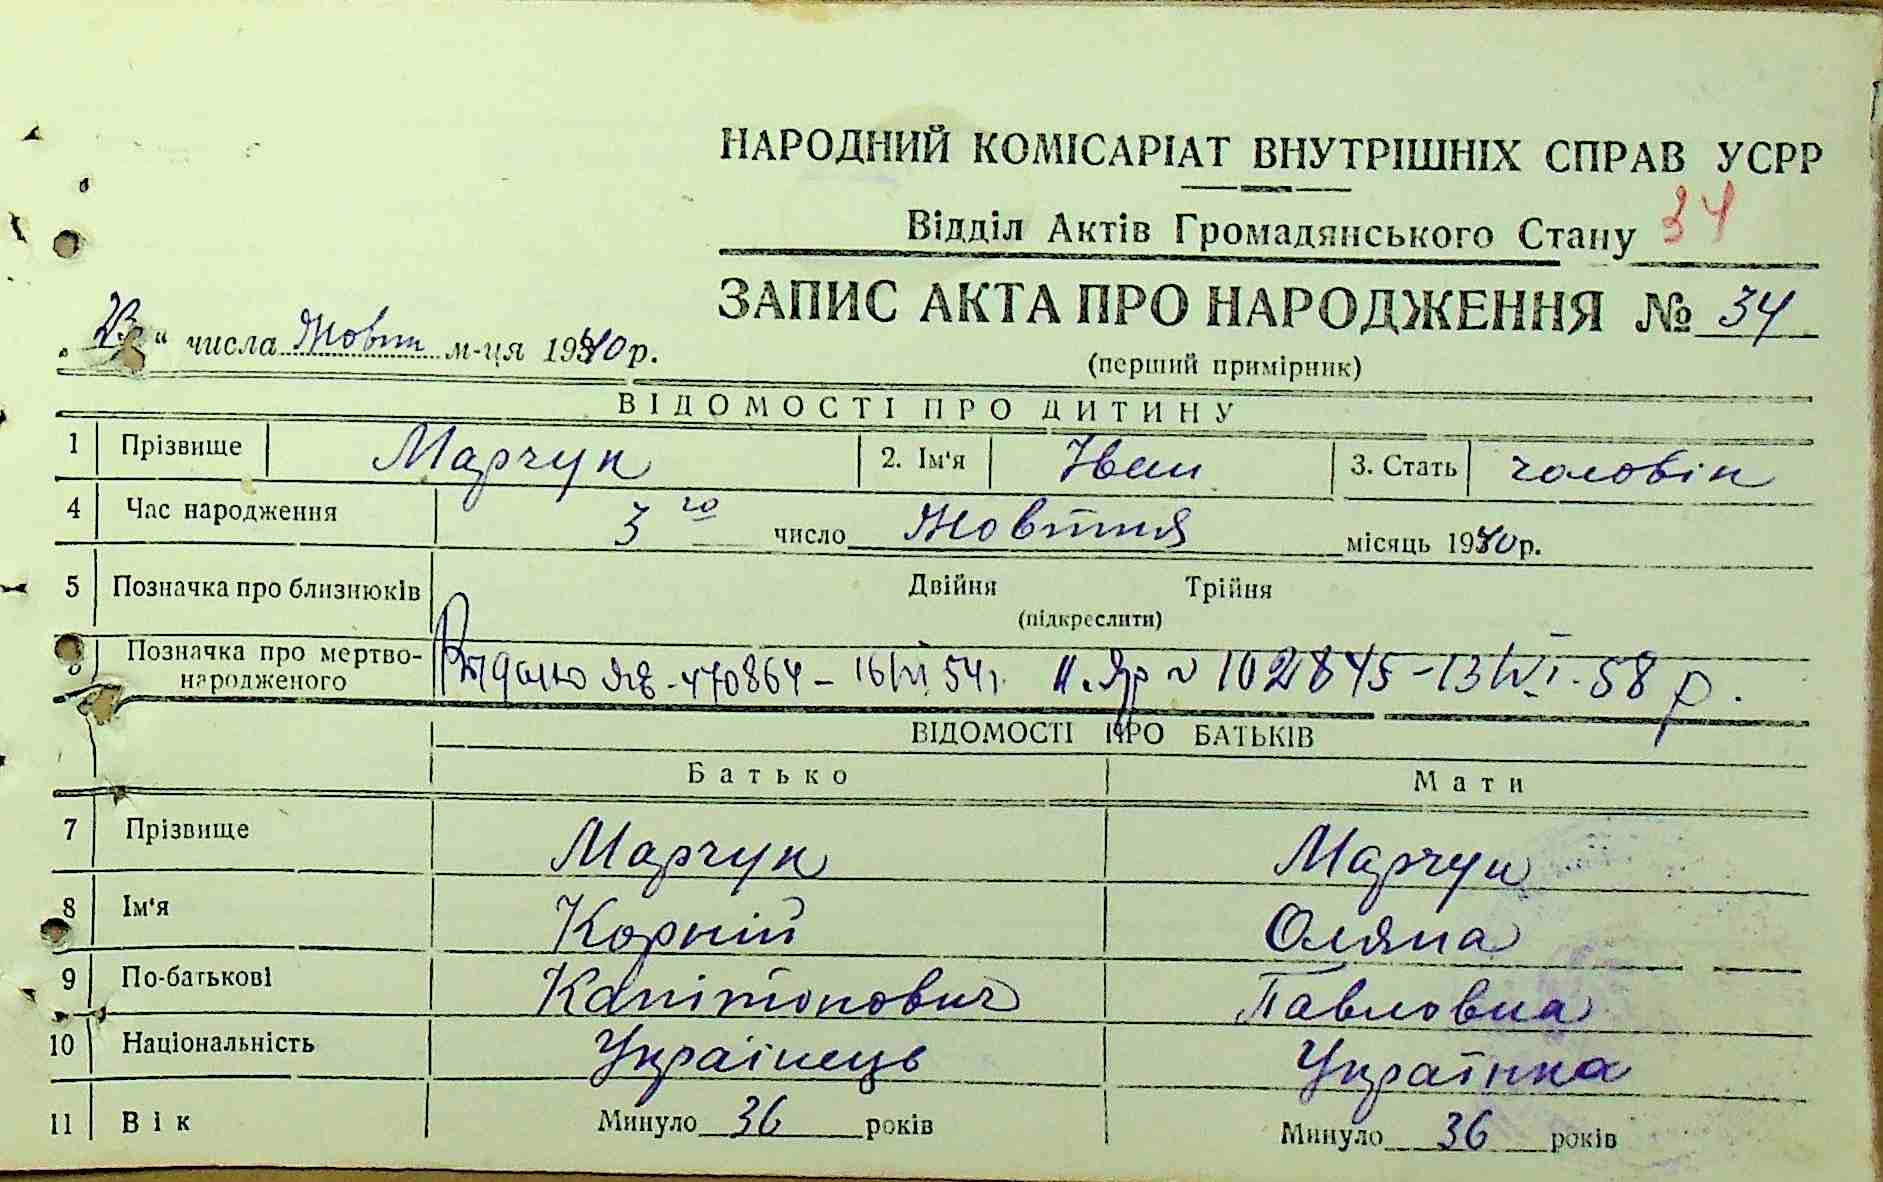 НАРОДНИЙ КОМІСАРІАТ ВНУТРІШНІХ СПРАВ УСРР
Відділ Актів Громадянського Стану 34
ЗАПИС АКТА ПРО НАРОДЖЕННЯ № 34
(перший примірник)
„ “ числа Жовтн м-ця 1940 р.
ВІДОМОСТІ ПРО ДИТИНУ
1 Прізвище Марчук 2. Ім'я Іван 3. Стать чоловік
4 Час народження 3 го число Жовтня місяць 1940 р.
5 Позначка про близнюків Двійня Трійня
(підкреслити)
6 Позначка про мертво-
народженого
Видано 470864 – 16/VI 54 г. 102845 – 13/VI-58 р.
ВІДОМОСТІ ПРО БАТЬКІВ
Батько Мати
7 Прізвище Марчук Марчук
8 Ім'я Корній Оляна
9 По-батькові Капітонович Павловна
10 Національність Українець Українка
11 Вік Минуло 36 років Минуло 36 років